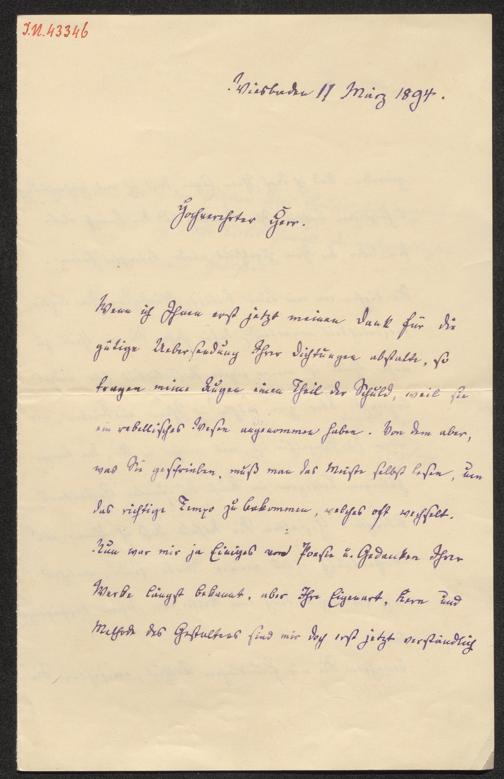 J.N. 43346
Wiesbaden 11 März 1894.
Hochverehrter Herr.
Wenn ich Ihnen erst jetzt meinen Dank für die
gütige Uebersendung Ihrer Dichtungen abstatte, so
tragen meine Augen einen Theil der Schuld, weil sie
ein rebellisches Wesen angenommen haben. Von dem aber,
was Sie geschrieben, muß man das Meiste selbst lesen, um
das richtige Tempo zu bekommen, welches oft wechselt.
Nun war mir ja Einiges von Poesie u. Gedanken Ihrer
Werke längst bekannt, aber Ihre Eigenart, Kern und
Methode des Gestaltens sind mir doch erst jetzt verständlich